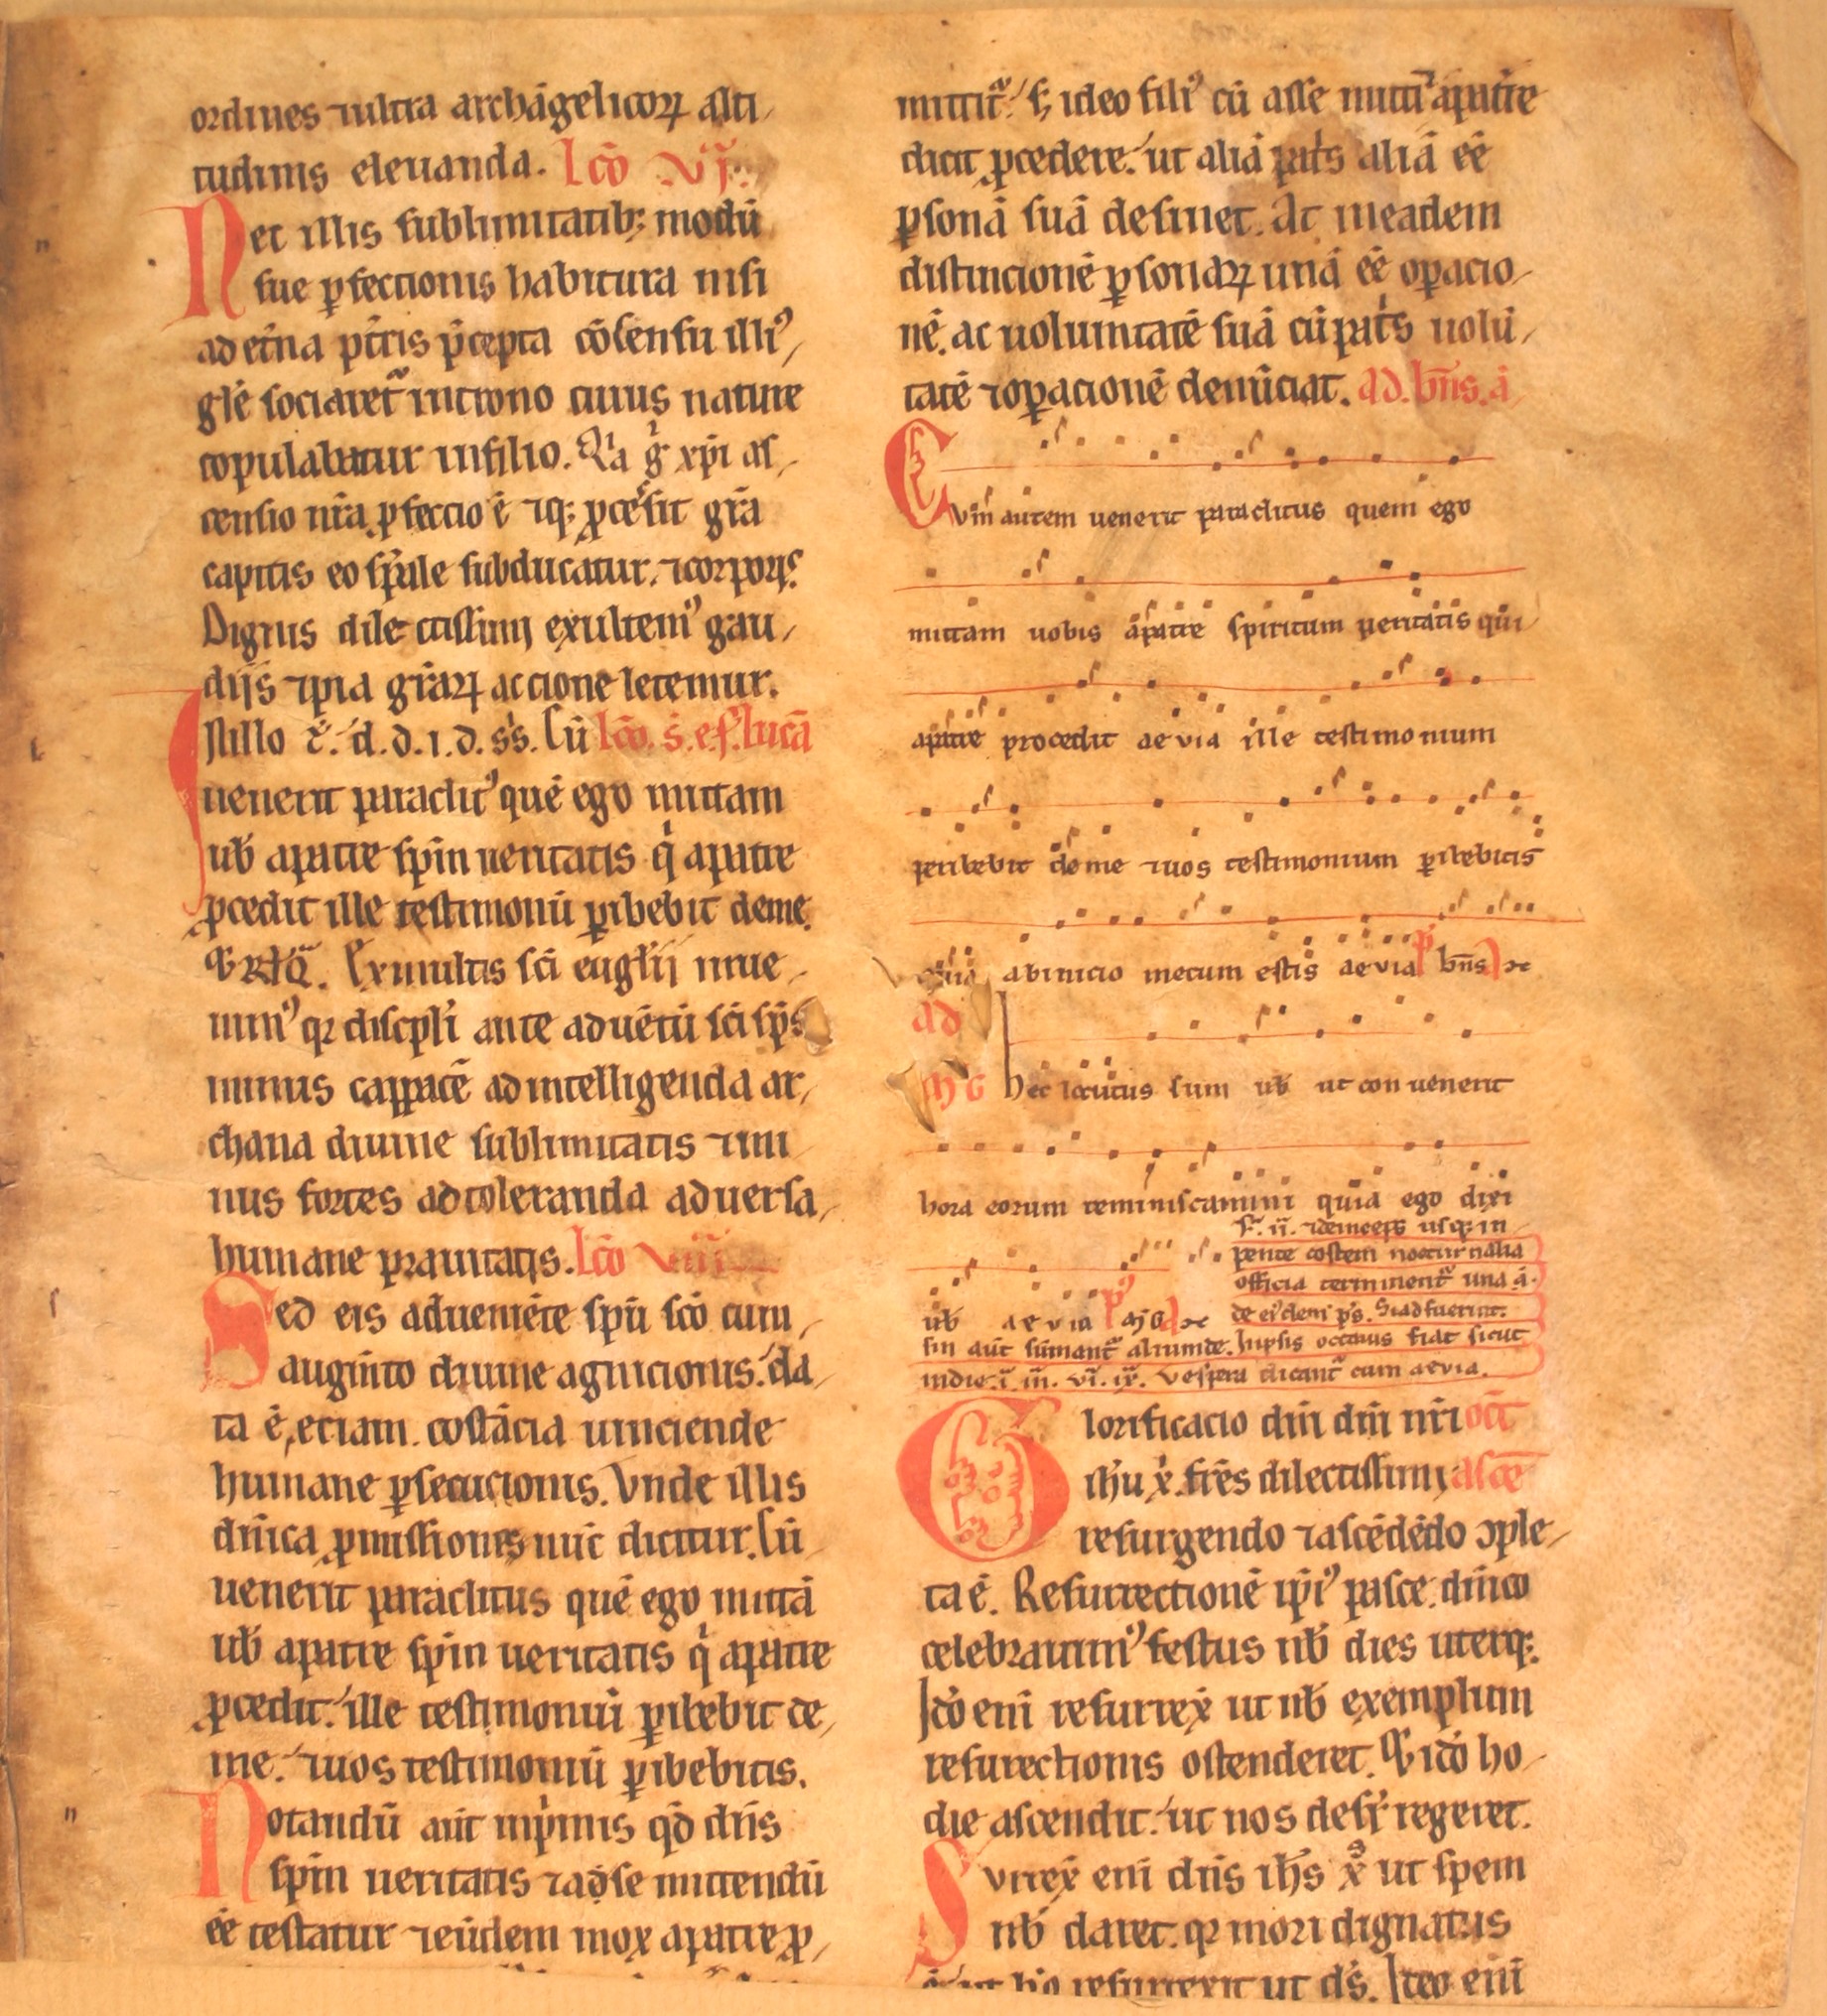 ordines ⁊ ultra archāgelicoꝝ alti
tudinis eleuanda. lcō VI.
Nec illis sublimitatibꝫ modū
sue ꝑfectionis habitura nisi
ad et̄na pt̄ris p̄cepta cōsensu illiꝰ
gl̄e sociaret᷑ in trono cuius nature
copulabatur in filio. Q̇a g̊ xp̄i as
censio nr̄a ꝑfeccio ē ⁊ qꝫ p̄cessit gr̄a
capitis eo sp̄ale subducatur ⁊ corporis.
Dignis dilectissimi exultemꝰ gau
diis ⁊ pia gr̄aꝝ accione letemur.
In illo t̄. d. d. i. d. s̄s. Cū lcō. s̄. e. s. lucā
uenerit paraclitꝰ quē ego mittam
uob̄ a patre sp̄m ueritatis q̇ a patre
ꝓcedit ille testimoniū ꝑibebit de me.
Ex multis sc̄i eugl̄ii inue
nimꝰ qꝛ discipl̄i ante aduētū sc̄i sp̄s
minus cappacē ad intelligenda ar
chana diuine sublimitatis ⁊ mi
nus fortes ad toleranda aduersa
humane prauitatis. lcō VIII
Sed eis adueniēte sp̄u sc̄o cum
augmito diuine agnicionis. da
ta ē, etiam. costācia uinciende
humane ꝑsecucionis. Vnde illis
dn̄ica ꝓmissiones nūc dicitur. Cū
uenerit paraclitus quē ego mittā
uob̄ a patre sp̄m ueritatis q̇ a patre
ꝓcedit. ille testimoniū ꝑibebit de
me. ⁊ uos testimoniū ꝑibebitis.
Notandū aūt inp̄mis qd̄ dn̄s
sp̄m ueritatis ⁊ a se mittendū
ēē testatur ⁊ eūdem mox a patre ꝓ
mittit᷑. s; ideo filiꝰ cū a sse mitti a patre
dicit ꝓcedere. ut aliā pat̄s aliā ēē
ꝑsonā suā desinet. At in eadem
distincionē ꝑsonaꝝ unā ēē oꝑacio
nē. ac uoluntatē suā cū pat̄s uolū
tatē ⁊ oꝑacionē denūciat. ad. bn̄s. ā
Cum autem uenerit paraclitus quem ego
mittam uobis a patre spiritum ueritatis qui
a patre procedit aeuia ille testimonium
peribebit de me ⁊ uos testimonium ꝑibebitis
quia ab inicio mecum estis aeuia p̄ bn̄s
ad
mḡ hec locutus sum uob̄ ut con uenerit
hora eorum reminiscamini quia ego dixi
f. ii. ⁊ deinceps usqꝫ in
pente costem nocturnalia
officia terminent᷑ una ā.
uob̄ aeuia p̄ mḡ de eisdem ps. Si adfuerint.
sin aūt sumant᷑ aliunde. In ipsis octauis fiat sicut
in die. i. iii. vi. ix. Vespera dicant᷑ cum aeuia.
Glorificacio dn̄i dn̄i nr̄i oct̄
ih̄u x̄. fr̄es dilectissimi ascē
resurgendo ⁊ ascēdēdo ɔple
ta ē. Resurrectionē ip̄iꝰ pasce. dn̄ico
celebrauimꝰ festus nob̄ dies uterqꝫ.
Ideo eni resurrex̄ ut nob̄ exemplum
resurectionis ostenderet. Et idō ho
die ascendit. ut nos desꝑ regeret.
Surrex̄ eni dn̄s ih̄s x̄ ut spem
nob̄ daret. qꝛ mori dignatus
resurrexit ut ds̄. Ideo eni